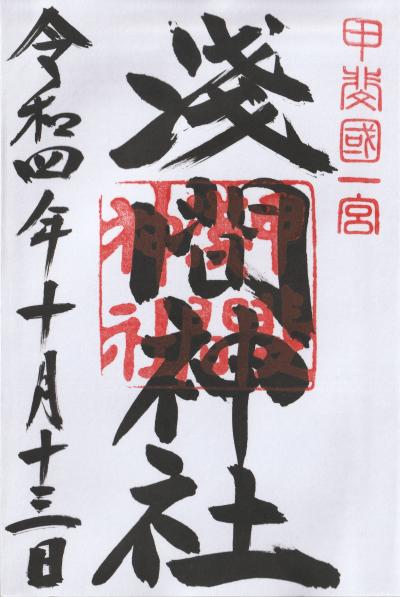 甲斐國一宮
淺間神社
令和四年十月十三日